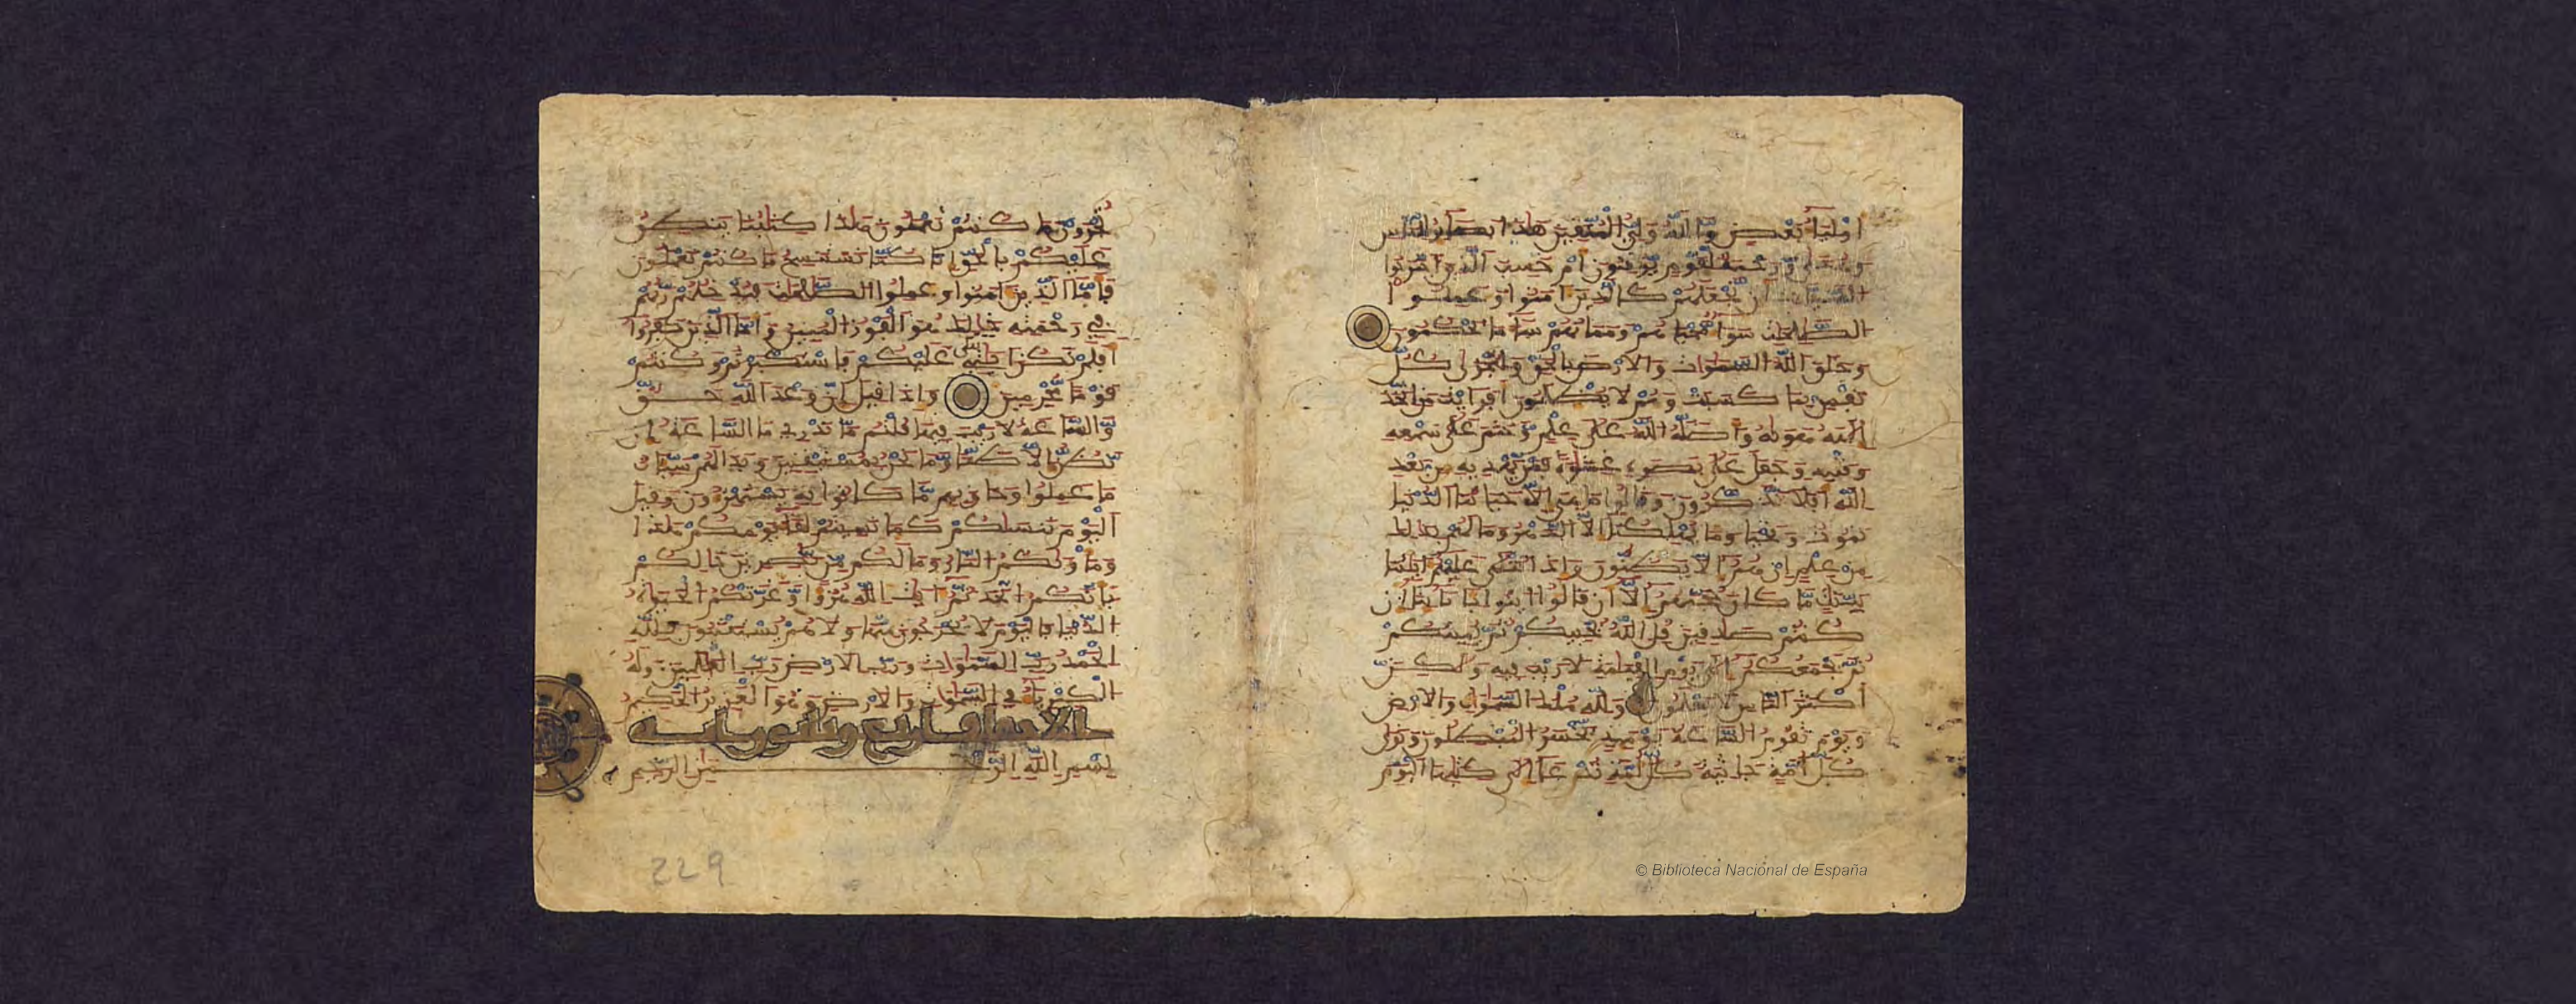 أولياء بعض والله ولي المتقين هذا بصائر للناس
وهدى ورحمة لقوم يوقنون أم حسب الذين اجترحوا
السيئات أن نجعلهم كالذين آمنوا وعملوا
الصالحات سواء محياهم ومماتهم ساء ما يحكمون
وخلق الله السموات والارض بالحق ولتجزى كل
نفس بما كسبت وهم لا يظلمون أفرأيت من اتخذ
إلهه هويه وأضله الله على علم وختم على سمعه
وقلبه وجعل على بصره غشاوة فمن يهديه من بعد
الله أفلا تذكرون وقالوا ما هي إلا حياتنا الدنيا
نموت ونحيا وما يهلكنا إلا الدهر وما لهم بذلك
من علم إن هم إلا يظنون وإذا تتلى عليهم آياتنا
بينات ما كان حجتهم إلا أن قالوا ائتوا بآبائنا إن
كنتم صادقين قل الله يحييكم ثم يميتكم
ثم يجمعكم إلى يوم القيامة لا ريب فيه ولكن
أكثر الناس لا يعلمون ولله ملك السموات والارض
ويوم تقوم الساعة يومئذ يخسر المبطلون وترى
كل أمة جاثية كل أمة تدعى إلى كتابها اليوم
تجزون ما كنتم تعملون هذا كتابنا ينطق
عليكم بالحق إنا كنا نستنسخ ما كنتم تعملون
فأما الذين آمنوا وعملوا الصالحات فيدخلهم ربهم
في رحمته ذلك هو الفوز المبين وأما الذين كفروا
أفلم تكن آياتي تتلى عليكم فاستكبرتم وكنتم
قوما مجرمين وإذا قيل إن وعد الله حق
والساعة لا ريب فيها قلتم ما ندري ما الساعة إن
نظن إلا ظنا وما نحن بمستيقنين وبدا لهم سيئات
ما عملوا وحاق بهم ما كانوا به يستهزءون وقيل
اليوم ننساكم كما نسيتم لقاء يومكم هذا
ومأويكم النار وما لكم من ناصرين ذالكم
بأنكم اتخذتم آيات الله هزؤا وغرتكم الحيوة
الدنيا فاليوم لا يخرجون منها ولا هم يستعتبون فلله
الحمد رب السموات ورب الارض رب العالمين وله
الكبرياء في السموات والارض وهو العزيز الحكيم
الاحقاف
بسم الله الرحمن الرحيم
229
© Biblioteca Nacional de España